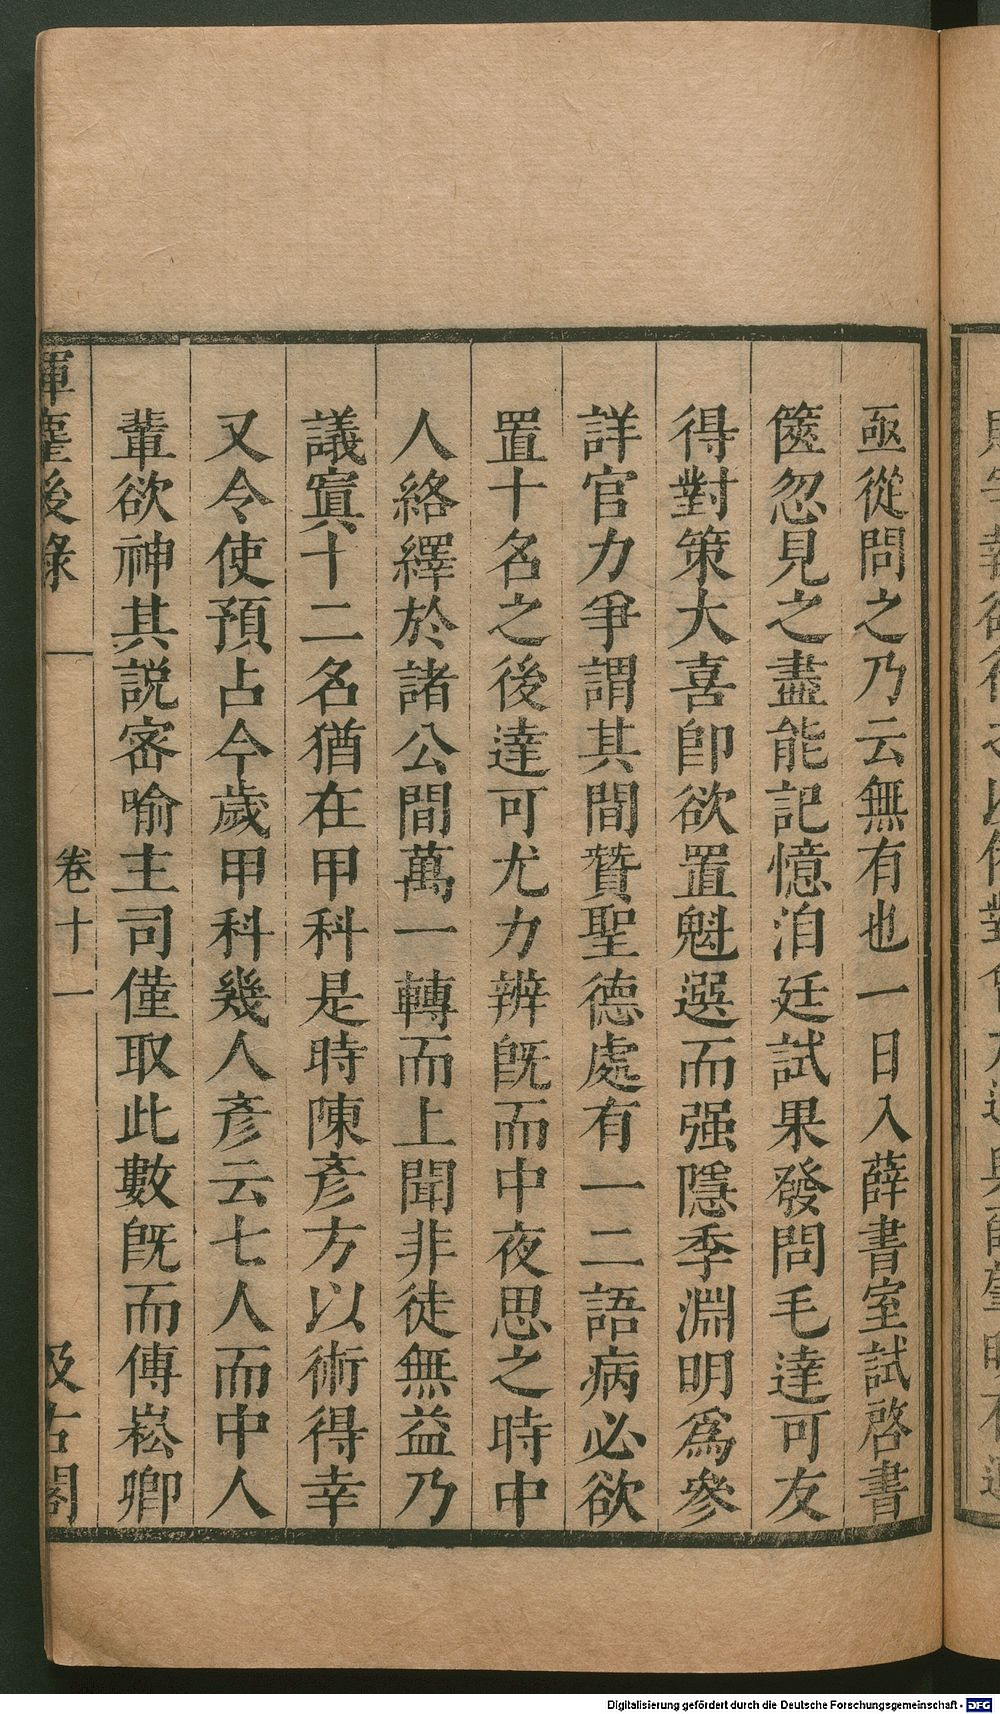 亟從問之乃云無有也一日入薛書室試啓書
篋忽見之盡能記憶洎廷試果發問毛達可友
得對策大喜卽欲置魁選而强隱季淵明爲參
詳官力爭謂其間贊聖德處有一二語病必欲
置十名之後達可尤力辨旣而中夜思之時中
人絡繹於諸公間萬一轉而上聞非徒無益乃
議寘十二名猶在甲科是時陳彥方以術得幸
又令使預占今歲甲科幾人彥云七人而中人
輩欲神其說密喻主司僅取此數旣而傳崧卿
揮麈後錄 卷十一 汲古閣